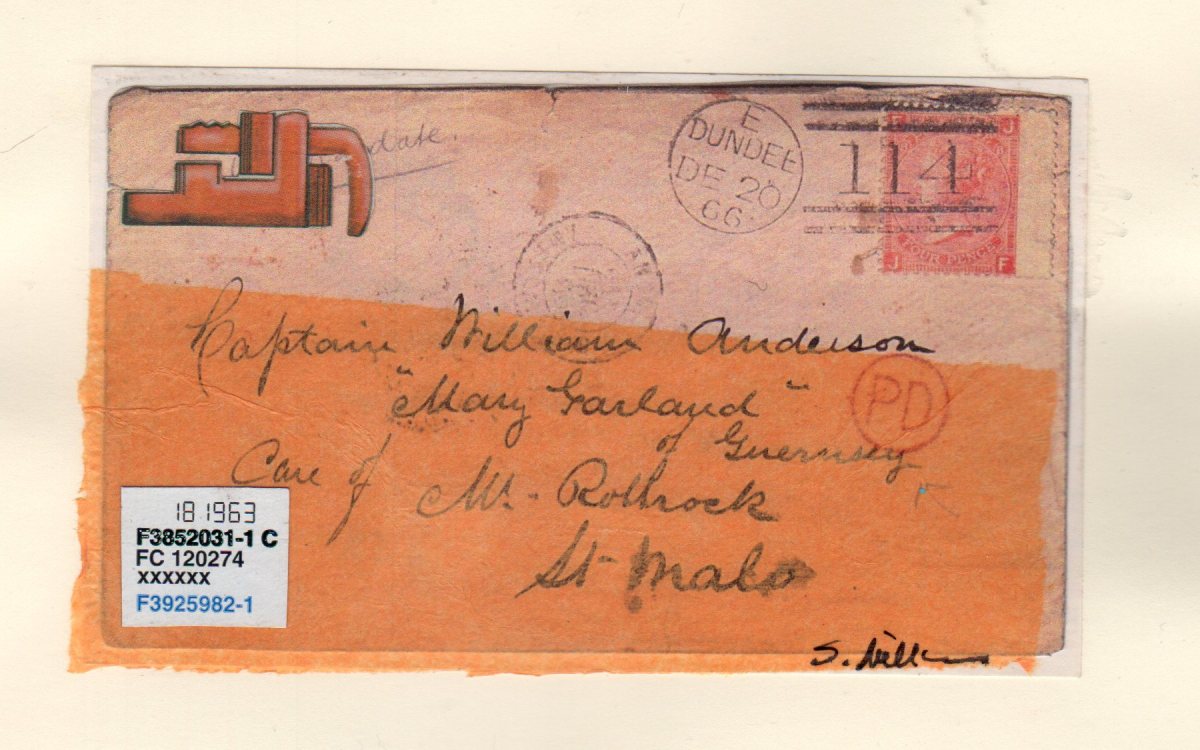 date.
E
DUNDEE
DE 20
66
114
J
FOUR PENCE
J F
Captain William Anderson
"Mary Garland"
of Guernsey
PD
Care of Mr. Rothrock
St Malo
18 1963
F3852031-1 C
FC 120274
xxxxxx
F3925982-1
S.